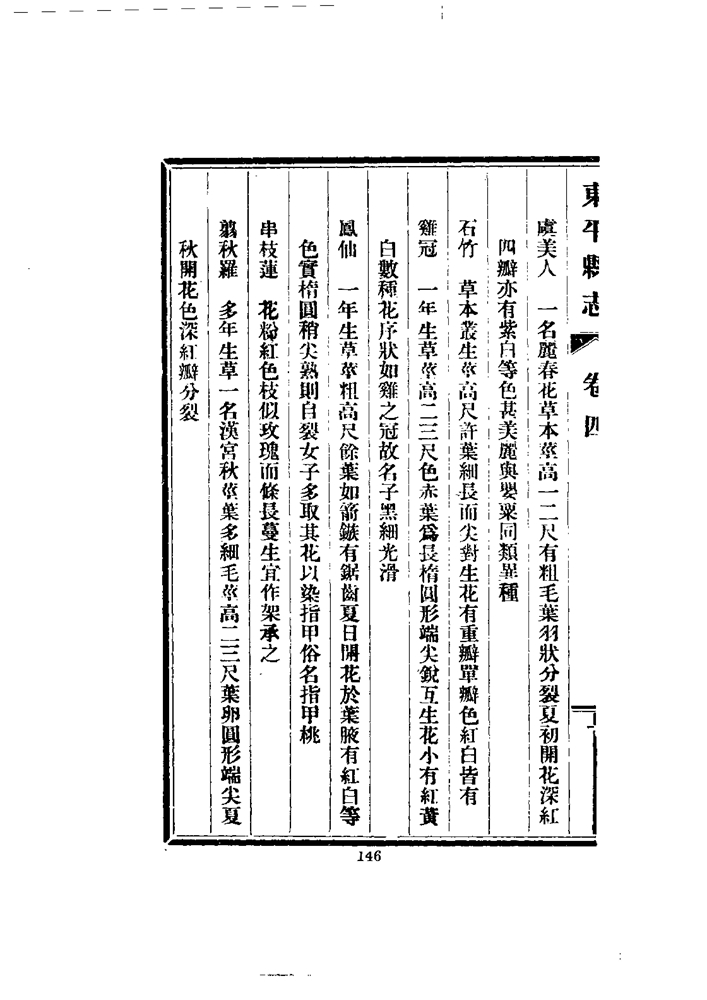 東平縣志 卷四
虞美人 一名麗春花草本莖高一二尺有粗毛葉羽狀分裂夏初開花深紅
四瓣亦有紫白等色甚美麗與嬰粟同類異種
石竹 草本叢生莖高尺許葉細長而尖對生花有重瓣單瓣色紅白皆有
雞冠 一年生草莖高二三尺色赤葉爲長楕圓形端尖銳互生花小有紅黃
白數種花序狀如雞之冠故名子黑細光滑
鳳仙 一年生草莖粗高尺餘葉如箭鏃有鋸齒夏日開花於葉腋有紅白等
色實楕圓稍尖熟則自裂女子多取其花以染指甲俗名指甲桃
串枝蓮 花粉紅色枝似玫瑰而條長蔓生宜作架承之
翦秋羅 多年生草一名漢宮秋莖葉多細毛莖高二三尺葉卵圓形端尖夏
秋開花色深紅瓣分裂
146